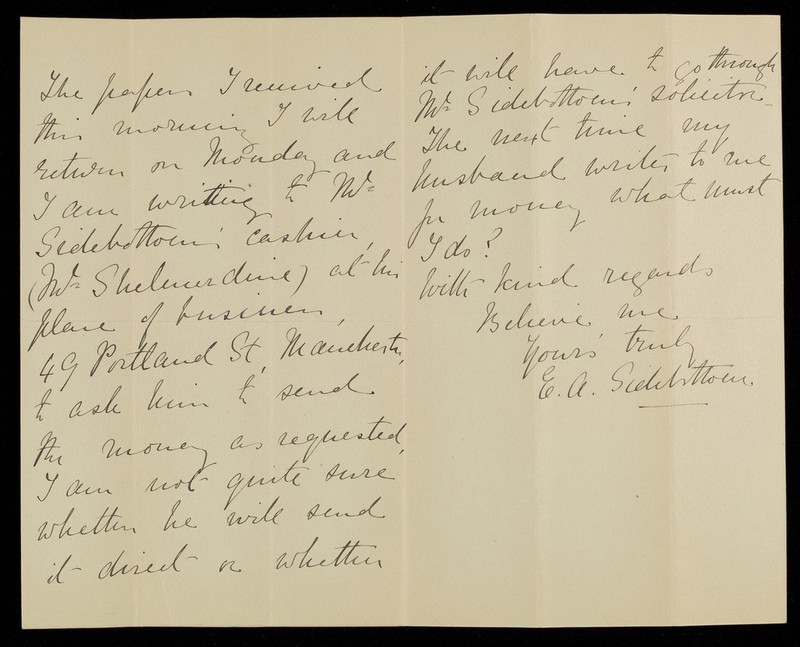 The papers I received
this morning I will
return on Monday and
I am writing to Mr
Sidebottom's cashier,
(Mr Shelmerdine) at his
place of business,
49 Portland St, Manchester,
to ask him to send
the money as requested,
I am not quite sure
whether he will send
it direct or whether
it will have to go through
Mr Sidebottom's solicitor.
The next time my
husband writes to me
for money what must
I do?
With kind regards
Believe me
Yours truly
E. A. Sidebottom.